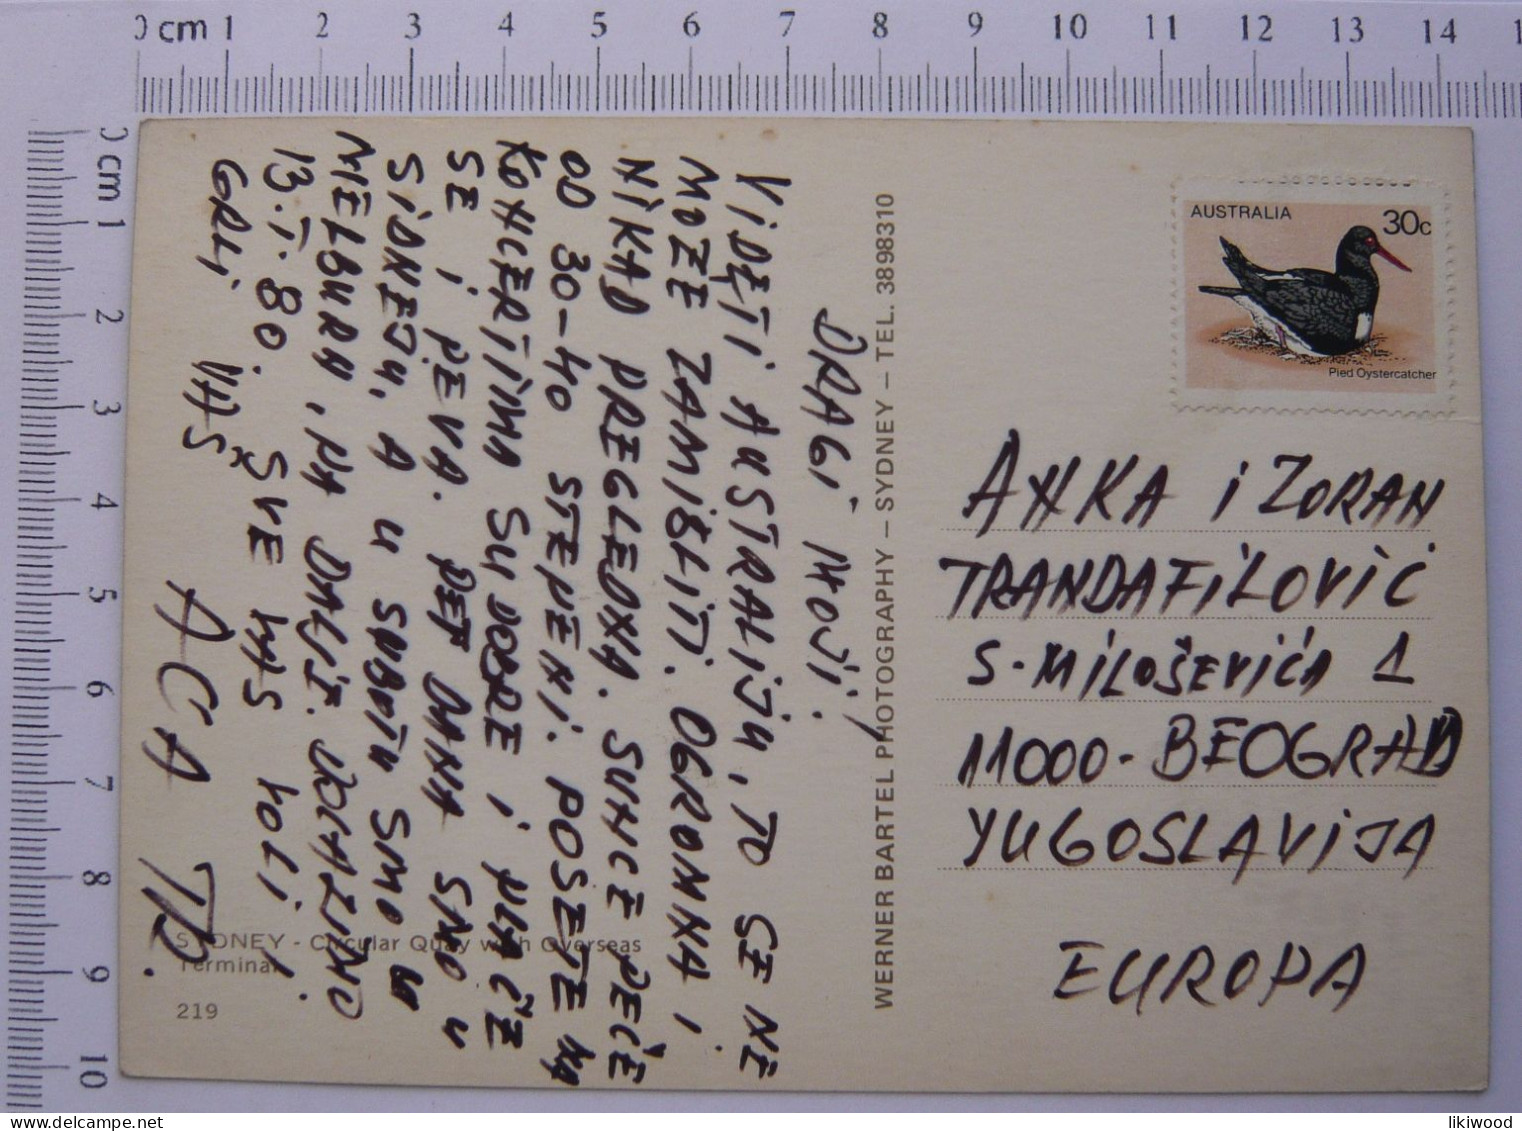 DRAGI MOJI!
VIDETI AUSTRALIJU, TO SE NE
MOŽE ZAMISLITI. OGROMNA I
NIKAD PREGLEDNA. SUNCE PEČE
OD 30-40 STEPENI. POSETE NA
KONCERTIMA SU DOBRE I PLAČE
SE I PEVA. PET DANA SMO U
SIDNEJU, A U SUBOTU SMO U
MELBURN, PA DALJE.
13.I.80. SVE VAS VOLI I
GRLI VAŠ
ACA
SYDNEY - Circular Quay with Overseas
Terminal
219
WERNER BARTEL PHOTOGRAPHY – SYDNEY – TEL. 3898310
AUSTRALIA 30c
Pied Oystercatcher
ANKA i ZORAN
TRANDAFILOVIĆ
S. MILOŠEVIĆA 1
11000 - BEOGRAD
YUGOSLAVIJA
EUROPA
0 cm 1 2 3 4 5 6 7 8 9 10 11 12 13 14
0 cm 1 2 3 4 5 6 7 8 9 10
likiwood